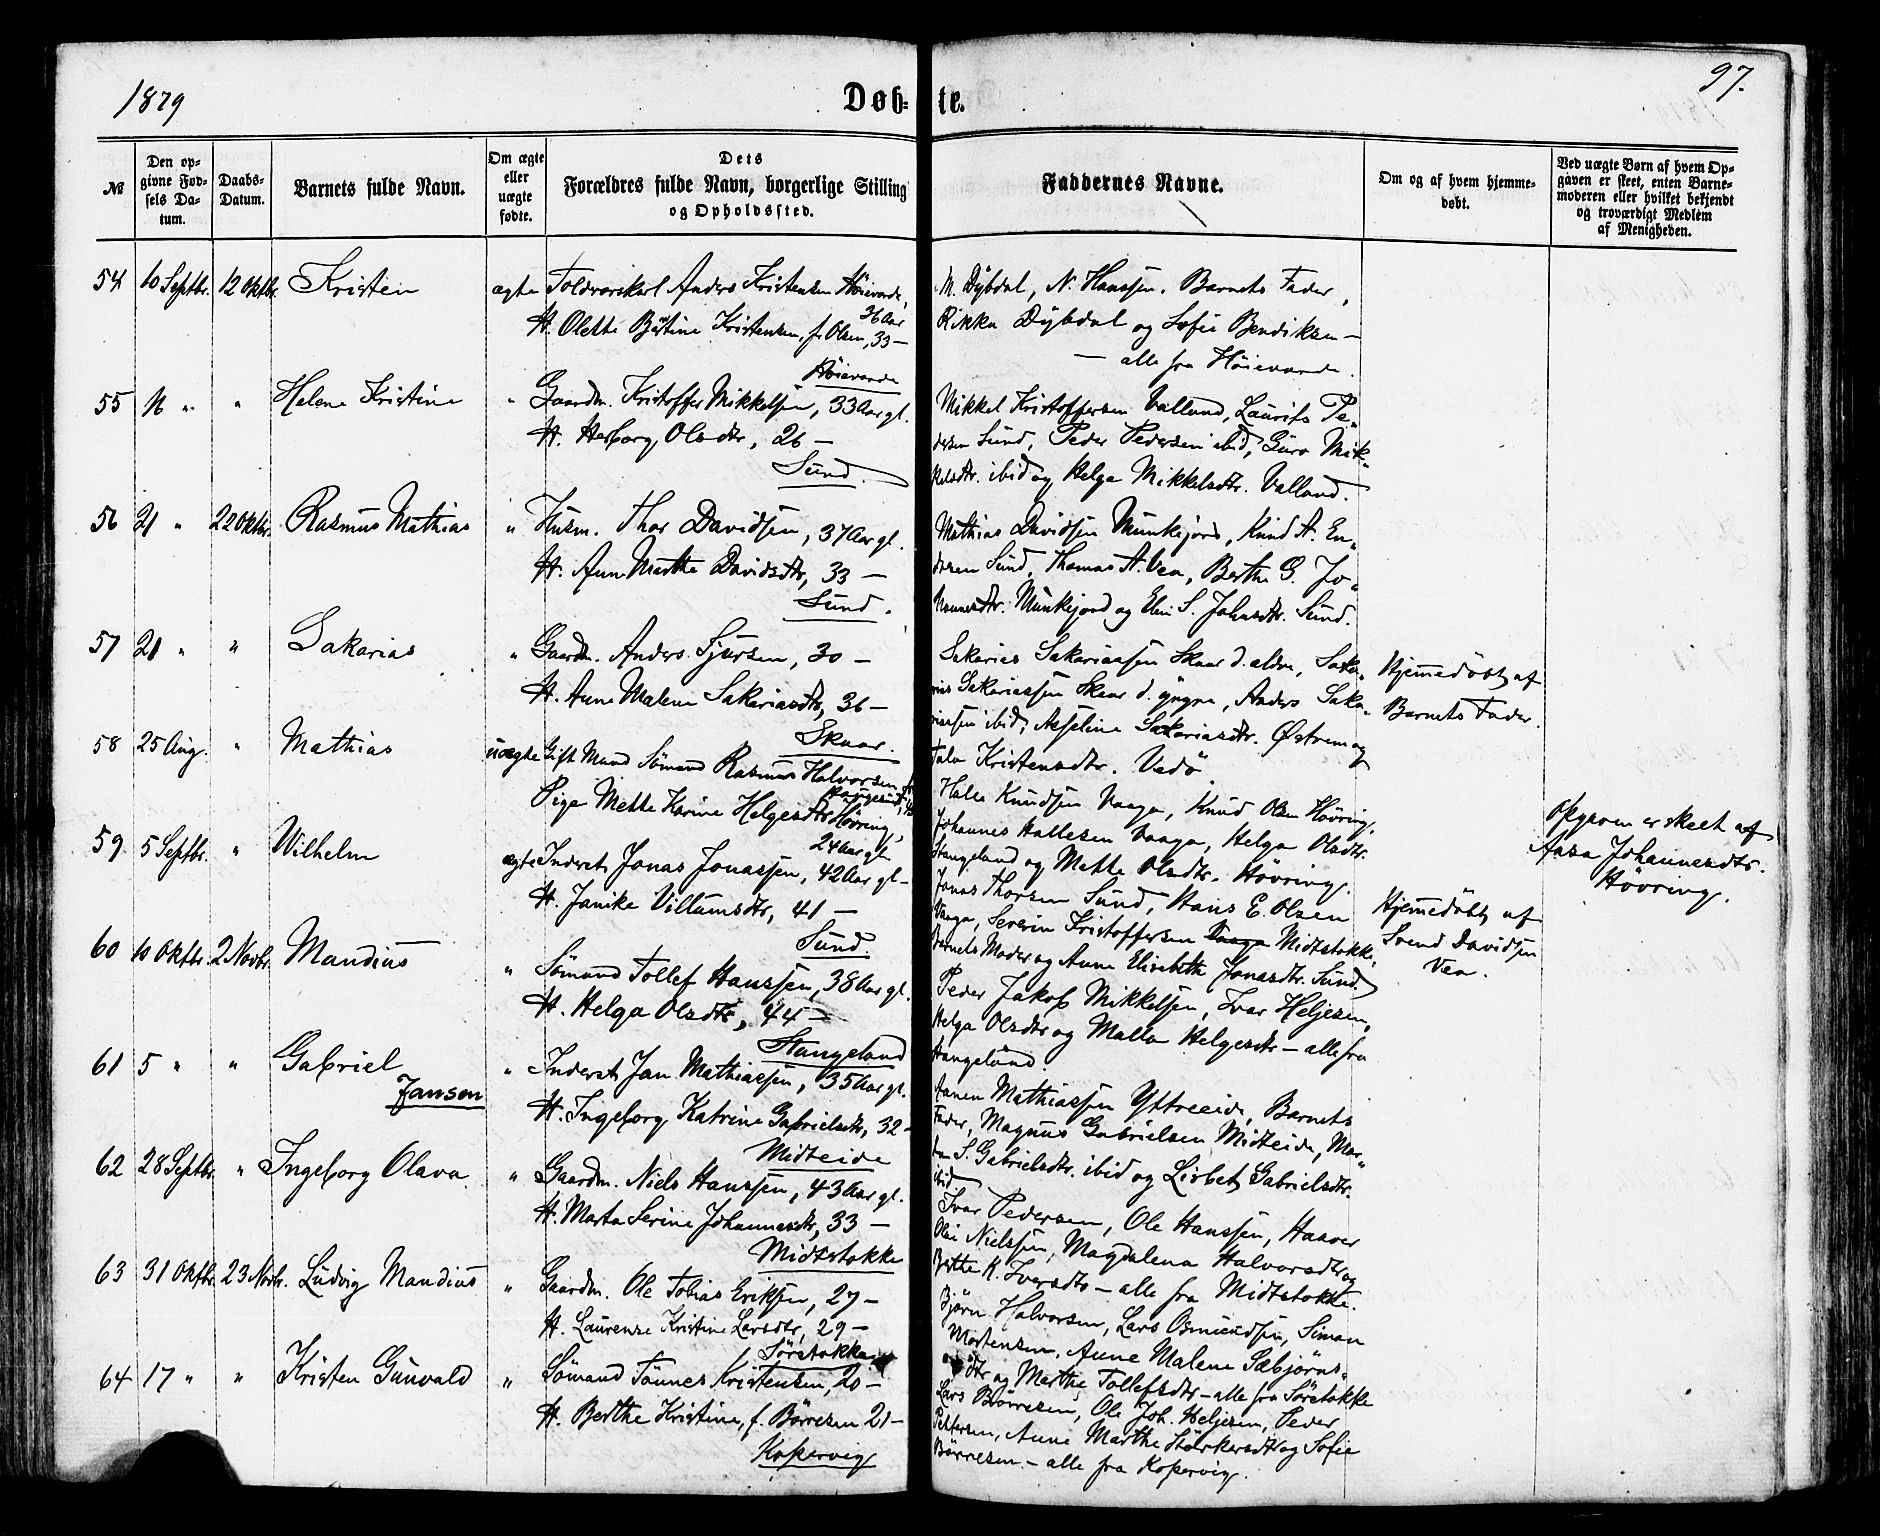 1879
Døb-te.
97.
№
Den opgivne Fødsels Datum.
Daabs-Datum.
Barnets fulde Navn.
Om ægte eller uægte fødte.
Dets Forældres fulde Navn, borgerlige Stilling og Opholdssted.
Faddernes Navne.
Om og af hvem hjemmedøbt.
Ved uægte Børn af hvem Opgaven er skeet, enten Barnemoderen eller hvilket bekjendt og troværdigt Medlem af Menigheden.
54 10 Septbr. 12 Oktbr. Kristen ægte Toldvorskarl Anders Kristensen Høievarde, 36 Aar
H. Olette Bertine Kristensen, f. Olsen, 33 —
Høievarde
M. Dybdal, N. Hanssen, Barnets Fader,
Rikka Dybdal og Sofie Bendiksen —
— alle fra Høievarde.
55 16 " " Helene Kristine " Gaardm. Kristoffer Mikkelsen, 33 Aar gl.
H. Herborg Olsdtr, 26 —
Sund.
Mikkel Kristoffersen Valland, Laurits Pe-
dersen Sund, Peder Pedersen ibid, Guro Mik-
kelsdtr. ibid og Helga Mikkelsdtr. Valland.
56 21 " 22 Oktbr. Rasmus Mathias " Husm. Thor Davidsen, 37 Aar gl.
H. Anne Marthe Davidsdtr, 33 —
Sund.
Mathias Davidsen Munkejord, Knud A. En-
dresen Sund, Thomas A. Vea, Berthe G. Jo-
hannesdtr. Munkejord og Elen S. Johnsdtr. Sund.
57 21 " " Sakarias " Gaardm. Anders Sjursen, 30 —
H. Anne Malene Sakariasdtr, 36 —
Skaar.
Sakarias Sakariassen Skaar d. ældre, Saka-
rias Sakariassen Skaar d. yngre, Anders Saka-
riassen ibid, Asseline Sakariasdtr. Østrem og
Tala Kristensdtr. Vedø
Hjemmedøbt af
Barnets Fader.
58 25 Aug. " Mathias uægte Gift Mand Sømand Rasmus Halvorsen
Pige Mette Karine Helgesdtr Høvring,
24 Aar gl
Halle Knudsen Vaaga, Knud Olsen Høvring,
Johannes Hallesen Vaaga, Helga Olsdtr.
Stangeland og Mette Olsdtr. Høvring.
Opgaven er skeet af
Aasa Johannesdtr.
Høvring.
59 5 Septbr. " Wilhelm ægte Inderst Jonas Jonassen, 42 Aar gl —
H. Janike Villumsdtr, 41 —
Sund.
Jonas Thorsen Sund, Hans E. Olsen
Vaaga, Severin Kristoffersen Vaaga Midtstokke,
Barnets Moder og Anne Elisabeth Jonasdtr. Sund.
Hjemmedøbt af
Svend Davidsen
Vea.
60 10 Oktbr. 2 Novbr. Mandius " Sømand Tollef Hanssen, 38 Aar gl.
H. Helga Olsdtr, 44 —
Stangeland
Peder Jakob Mikkelsen, Ivar Heljesen,
Helga Olsdtr og Malla Helgesdtr — alle fra
Stangeland.
61 5 " " Gabriel
Jansen
" Inderst Jan Mathiassen, 35 Aar gl.
H. Ingeborg Katrine Gabrielsdtr, 32 —
Midteide
Aanen Mathiassen Yttreeide, Barnets
Fader, Magnus Gabrielsen Midteide, Mar-
ta S. Gabrielsdtr. ibid og Lisbet Gabrielsdtr.
ibid
62 28 Septbr. " Ingeborg Olava " Gaardm. Niels Hanssen, 43 Aar gl.
H. Marta Serine Johannesdtr, 33 —
Midtstokke
Ivar Pedersen, Ole Hanssen, Haaver
Olai Nielsen, Magdalena Halvorsdtr og
Berthe K. Iversdtr — alle fra Midtstokke.
63 31 Oktbr. 23 Novbr. Ludvig Mandius " Gaardm. Ole Tobias Eriksen, 27 —
H. Laurense Kristine Larsdtr, 29 —
Sørstokke
Bjørn Halvorsen, Lars Osmundsen, Simon
Mortensen, Anne Malene Sæbjørns-
dtr og Marthe Tollefsdtr — alle fra Sørstokke
64 17 " " Kristen Gunvald " Sømand Tønnes Kristensen, 20 —
H. Berthe Kristine, f. Børresen 21 —
Kopervig
Lars Børresen, Ole Joh. Heljesen, Peder
Pettersen, Anne Marthe Størkersdtr og Sofie
Børresen — alle fra Kopervig.